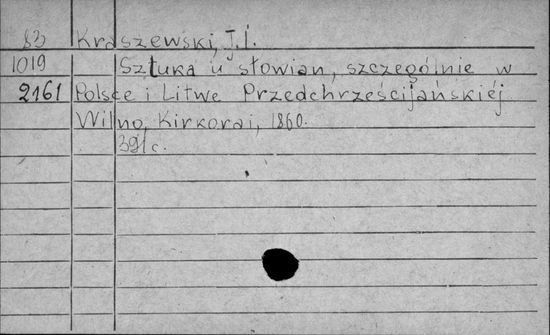 83 Kraszewski, J.I.
1019 Sztuka u słowian, szczególnie w
2161 Polsce i Litwe Przedchrześcijańskiéj
Wilno, Kirkorai, 1860.
391 c.